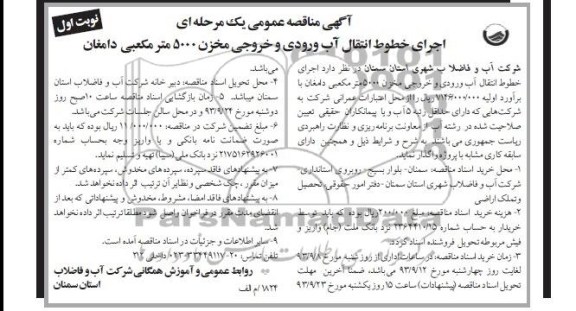 نوبت اول
آگهی مناقصه عمومی یک مرحله ای
اجرای خطوط انتقال آب ورودی و خروجی مخزن ۵۰۰۰ متر مکعبی دامغان
شرکت آب و فاضلاب شهری استان سمنان در نظر دارد اجرای
خطوط انتقال آب ورودی و خروجی مخزن ۵۰۰۰ متر مکعبی دامغان با
برآورد اولیه ریال را از محل اعتبارات عمرانی شرکت به
شرکت‌هایی که دارای حداقل رتبه ۵ آب و یا پیمانکاران حقیقی تعیین
صلاحیت شده در رشته آب از معاونت برنامه ریزی و نظارت راهبردی
ریاست جمهوری می باشند به شرح و شرایط ذیل و همچنین دارای
سابقه کاری مشابه با پروژه واگذار نماید.
۱- محل خرید اسناد مناقصه: سمنان- بلوار بسیج- روبروی استانداری-
شرکت آب و فاضلاب شهری استان سمنان- دفتر امور حقوقی تحصیل
وتملک اراضی
۲- هزینه خرید اسناد مناقصه: مبلغ ۲۰۰/۰۰۰ ریال بوده که باید توسط
خریدار به حساب شماره ۲۳۶۴۴۱۰/۱۵ نزد بانک ملت (جام) واریز و
فیش مربوطه تحویل فروشنده اسناد گردد.
۳- زمان خرید اسناد مناقصه: در ساعات اداری از روز شنبه مورخ ۹۳/۹/۸
لغایت روز چهارشنبه مورخ ۹۳/۹/۱۲ می باشد. ضمناً آخرین مهلت
تحویل اسناد مناقصه (پیشنهادات) ساعت ۱۵ روز یکشنبه مورخ ۹۳/۹/۲۳
می‌باشد.
۴- محل تحویل اسناد مناقصه: دبیرخانه شرکت آب و فاضلاب استان
سمنان میباشد. ۵- زمان بازگشایی اسناد مناقصه ساعت ۱۰ صبح روز
دوشنبه مورخ ۹۳/۹/۲۴ و در محل سالن جلسات شرکت می باشد.
۶- مبلغ تضمین شرکت در مناقصه: ۱۱/۰۰۰/۰۰۰ ریال بوده که باید به
صورت ضمانت نامه بانکی و یا واریز وجه بحساب شماره
نزد بانک ملی (سیبا) تهیه و تسلیم نماید.
۷- به پیشنهادهای فاقد سپرده، سپرده‌های مخدوش، سپرده‌های کمتر از
میزان مقرر، چک شخصی و نظایر آن ترتیب اثر داده نخواهد شد.
۸- به پیشنهادهای فاقد امضا، مشروط، مخدوش و پیشنهاداتی که بعد از
انقضای مدت مقرر در فراخوان واصل شود مطلقا ترتیب اثر داده نخواهد
شد.
۹- سایر اطلاعات و جزئیات در اسناد مناقصه آمده است.
تلفن تماس: ۲۰-۰۲۳-۳۳۴۴۹۱۱۷ داخلی ۳۱۴
روابط عمومی و آموزش همگانی شرکت آب و فاضلاب
استان سمنان
۱۸۲۴/م الف
ParsNamadData